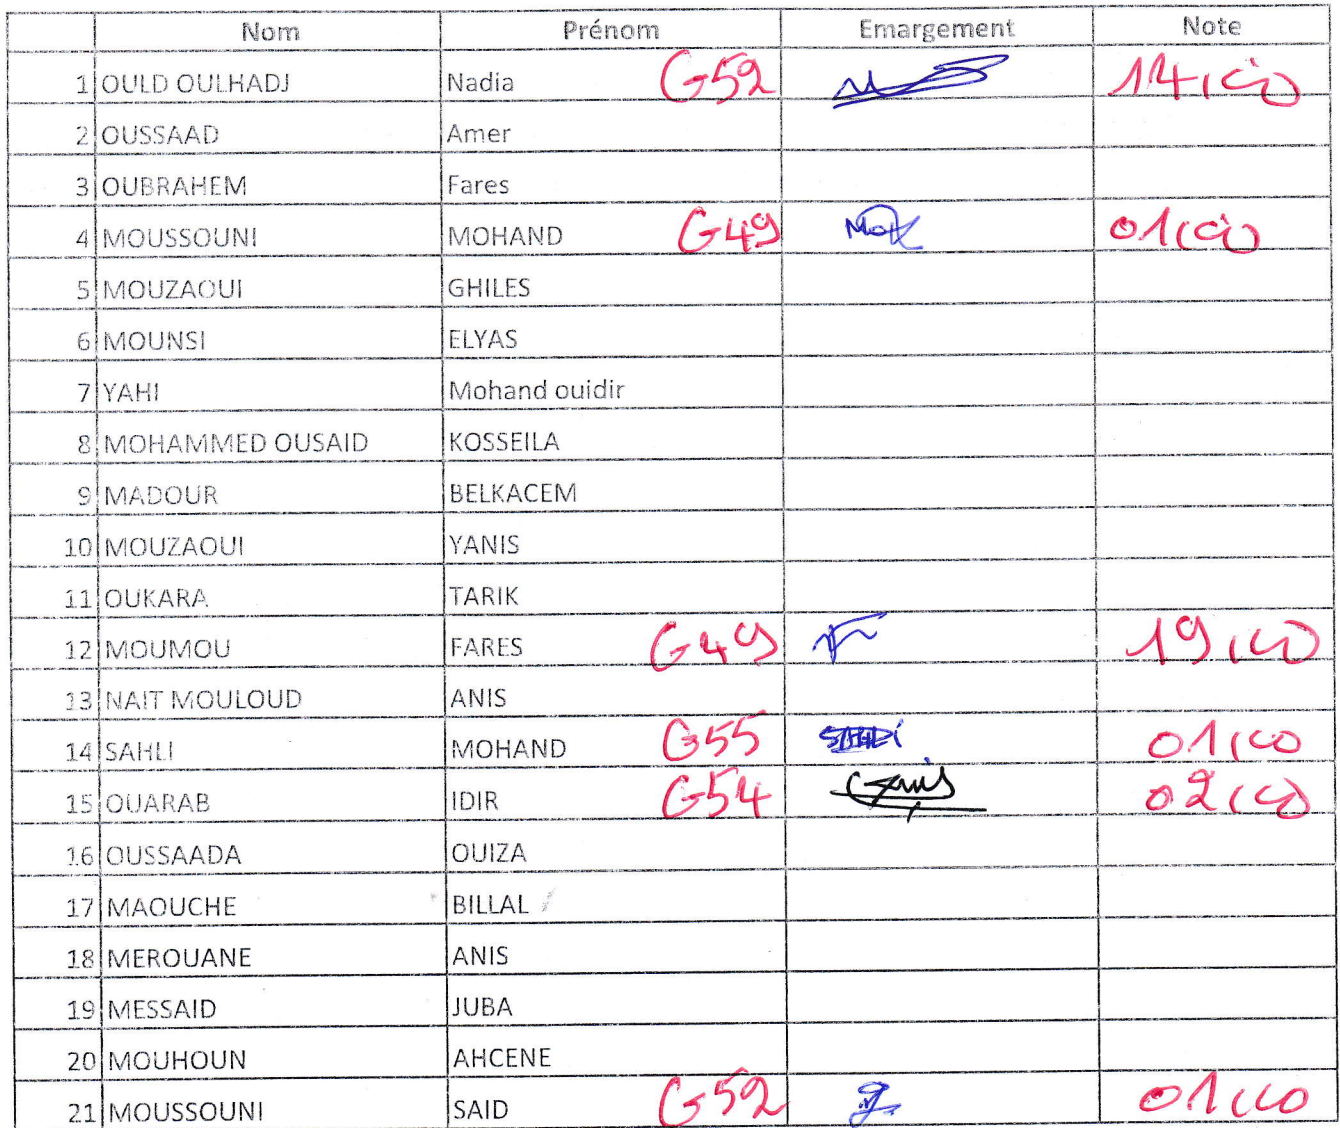 Nom Prénom Emargement Note
1 OULD OULHADJ Nadia G52 14,00
2 OUSSAAD Amer
3 OUBRAHEM Fares
4 MOUSSOUNI MOHAND G49 01,00
5 MOUZAOUI GHILES
6 MOUNSI ELYAS
7 YAHI Mohand ouidir
8 MOHAMMED OUSAID KOSSEILA
9 MADOUR BELKACEM
10 MOUZAOUI YANIS
11 OUKARA TARIK
12 MOUMOU FARES G49 19,00
13 NAIT MOULOUD ANIS
14 SAHLI MOHAND G55 01,00
15 OUARAB IDIR G54 02,00
16 OUSSAADA OUIZA
17 MAOUCHE BILLAL
18 MEROUANE ANIS
19 MESSAID JUBA
20 MOUHOUN AHCENE
21 MOUSSOUNI SAID G52 01,00